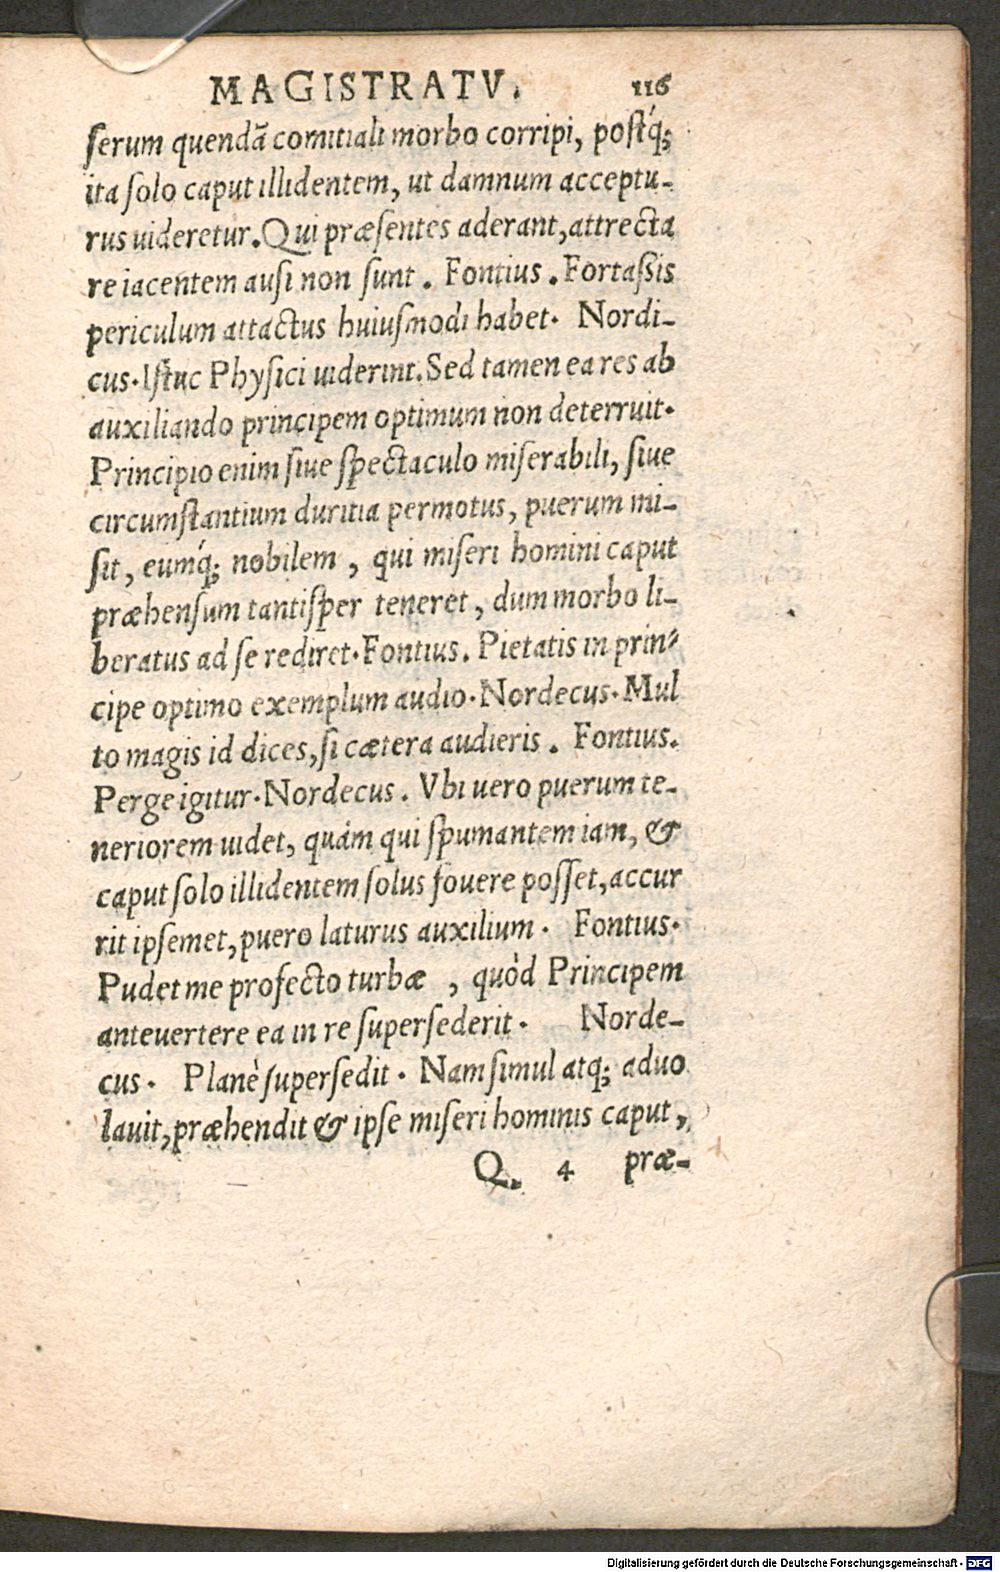 MAGISTRATV. 116
ſerum quendã comitiali morbo corripi, poſtq́;
ita ſolo caput illidentem, ut damnum acceptu-
rus uideretur. Qui præſentes aderant, attrecta
re iacentem auſi non ſunt. Fontius. Fortaſsis
periculum attactus huiuſmodi habet. Nordi-
cus. Iſtuc Phyſici uiderint. Sed tamen ea res ab
auxiliando principem optimum non deterruit.
Principio enim ſiue ſpectaculo miſerabili, ſiue
circumſtantium duritia permotus, puerum mi-
ſit, eumq́; nobilem, qui miſeri homini caput
præhenſum tantiſper teneret, dum morbo li-
beratus ad ſe rediret. Fontius. Pietatis in prin-
cipe optimo exemplum audio. Nordecus. Mul
to magis id dices, ſi cætera audieris. Fontius.
Perge igitur. Nordecus. Vbi uero puerum te-
neriorem uidet, quàm qui ſpumantem iam, &
caput ſolo illidentem ſolus fouere poſſet, accur
rit ipſemet, puero laturus auxilium. Fontius.
Pudet me profecto turbæ, quòd Principem
anteuertere ea in re ſuperſederit. Norde-
cus. Planè ſuperſedit. Nam ſimul atq; aduo
lauit, præhendit & ipſe miſeri hominis caput,
Q. 4 præ-
Digitalisierung gefördert durch die Deutsche Forschungsgemeinschaft - DFG